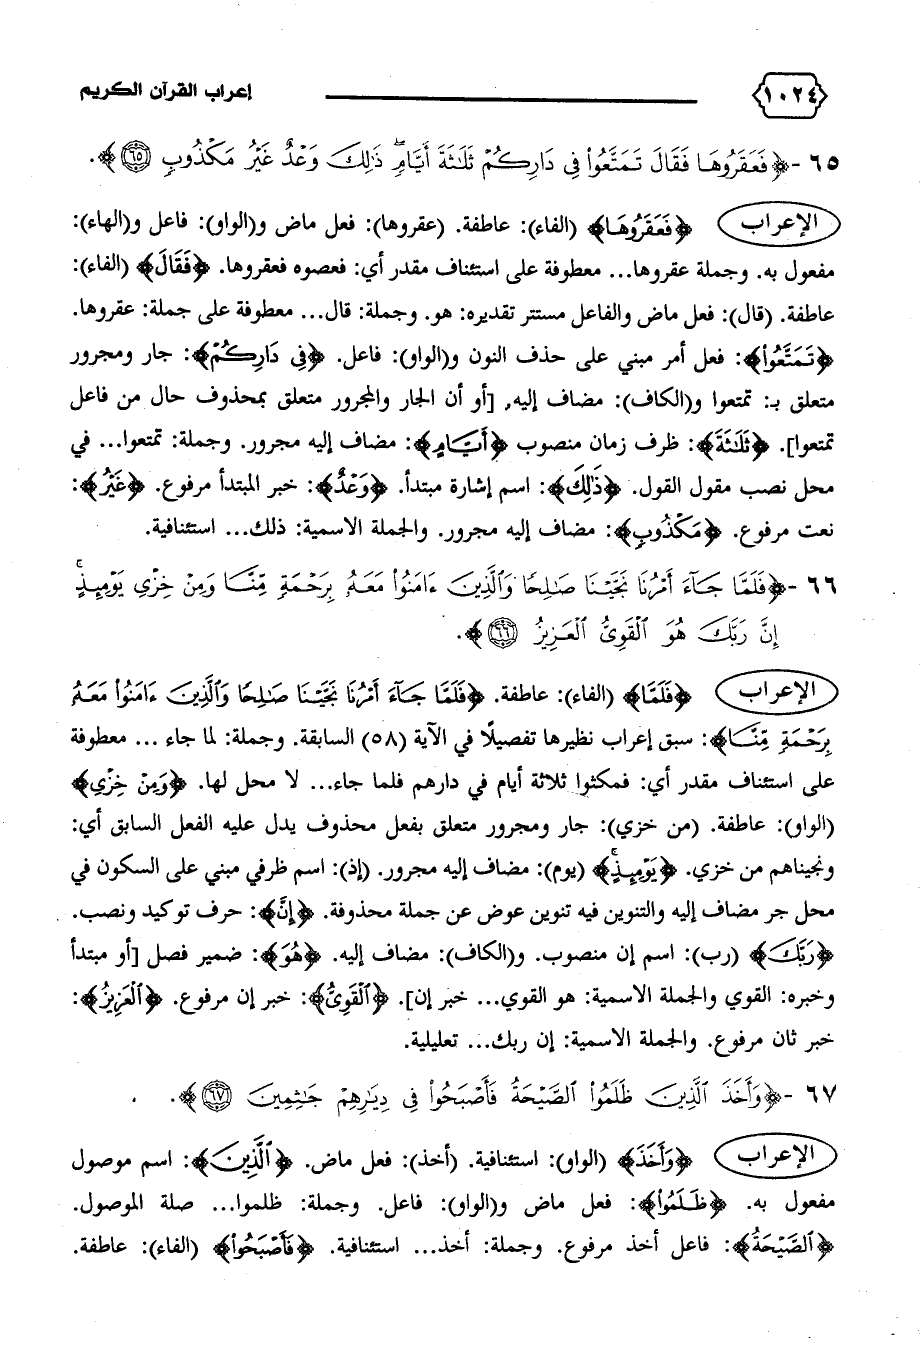 ١٠٢٤ إعراب القرآن الكريم
٦٥ -﴿فَعَقَرُوهَا فَقَالَ تَمَتَّعُواْ فِى دَارِكُمْ ثَلَٰثَةَ أَيَّامٍۖ ذَٰلِكَ وَعْدٌ غَيْرُ مَكْذُوبٍ ﴿٦٥﴾﴾.
الإعراب ﴿فَعَقَرُوهَا﴾ (الفاء): عاطفة. (عقروها): فعل ماض و(الواو): فاعل و(الهاء):
مفعول به. وجملة عقروها... معطوفة على استئناف مقدر أي: فعصوه فعقروها. ﴿فَقَالَ﴾ (الفاء):
عاطفة. (قال): فعل ماض والفاعل مستتر تقديره: هو. وجملة: قال... معطوفة على جملة: عقروها.
﴿تَمَتَّعُواْ﴾: فعل أمر مبني على حذف النون و(الواو): فاعل. ﴿فِى دَارِكُمْ﴾: جار ومجرور
متعلق بـ: تمتعوا و(الكاف): مضاف إليه, [أو أن الجار والمجرور متعلق بمحذوف حال من فاعل
تمتعوا]. ﴿ثَلَٰثَةَ﴾: ظرف زمان منصوب ﴿أَيَّامٍ﴾: مضاف إليه مجرور. وجملة: تمتعوا... في
محل نصب مقول القول. ﴿ذَٰلِكَ﴾: اسم إشارة مبتدأ. ﴿وَعْدٌ﴾: خبر المبتدأ مرفوع. ﴿غَيْرُ﴾:
نعت مرفوع. ﴿مَكْذُوبٍ﴾: مضاف إليه مجرور. والجملة الاسمية: ذلك... استئنافية.
٦٦ -﴿فَلَمَّا جَآءَ أَمْرُنَا نَجَّيْنَا صَٰلِحًا وَٱلَّذِينَ ءَامَنُواْ مَعَهُۥ بِرَحْمَةٍ مِّنَّا وَمِنْ خِزْىِ يَوْمِئِذٍۚ
إِنَّ رَبَّكَ هُوَ ٱلْقَوِىُّ ٱلْعَزِيزُ ﴿٦٦﴾﴾.
الإعراب ﴿فَلَمَّا﴾ (الفاء): عاطفة. ﴿فَلَمَّا جَآءَ أَمْرُنَا نَجَّيْنَا صَٰلِحًا وَٱلَّذِينَ ءَامَنُواْ مَعَهُۥ
بِرَحْمَةٍ مِّنَّا﴾: سبق إعراب نظيرها تفصيلًا في الآية (٥٨) السابقة. وجملة: لما جاء ... معطوفة
على استئناف مقدر أي: فمكثوا ثلاثة أيام في دارهم فلما جاء... لا محل لها. ﴿وَمِنْ خِزْىِ﴾
(الواو): عاطفة. (من خزي): جار ومجرور متعلق بفعل محذوف يدل عليه الفعل السابق أي:
ونجيناهم من خزي. ﴿يَوْمِئِذٍۚ﴾ (يوم): مضاف إليه مجرور. (إذ): اسم ظرفي مبني على السكون في
محل جر مضاف إليه والتنوين فيه تنوين عوض عن جملة محذوفة. ﴿إِنَّ﴾: حرف توكيد ونصب.
﴿رَبَّكَ﴾ (رب): اسم إن منصوب. و(الكاف): مضاف إليه. ﴿هُوَ﴾: ضمير فصل [أو مبتدأ
وخبره: القوي والجملة الاسمية: هو القوي... خبر إن]. ﴿ٱلْقَوِىُّ﴾: خبر إن مرفوع. ﴿ٱلْعَزِيزُ﴾:
خبر ثان مرفوع. والجملة الاسمية: إن ربك... تعليلية.
٦٧ -﴿وَأَخَذَ ٱلَّذِينَ ظَلَمُواْ ٱلصَّيْحَةُ فَأَصْبَحُواْ فِى دِيَٰرِهِمْ جَٰثِمِينَ ﴿٦٧﴾﴾.
الإعراب ﴿وَأَخَذَ﴾ (الواو): استئنافية. (أخذ): فعل ماض. ﴿ٱلَّذِينَ﴾: اسم موصول
مفعول به. ﴿ظَلَمُواْ﴾: فعل ماض و(الواو): فاعل. وجملة: ظلموا... صلة الموصول.
﴿ٱلصَّيْحَةُ﴾: فاعل أخذ مرفوع. وجملة: أخذ... استئنافية. ﴿فَأَصْبَحُواْ﴾ (الفاء): عاطفة.